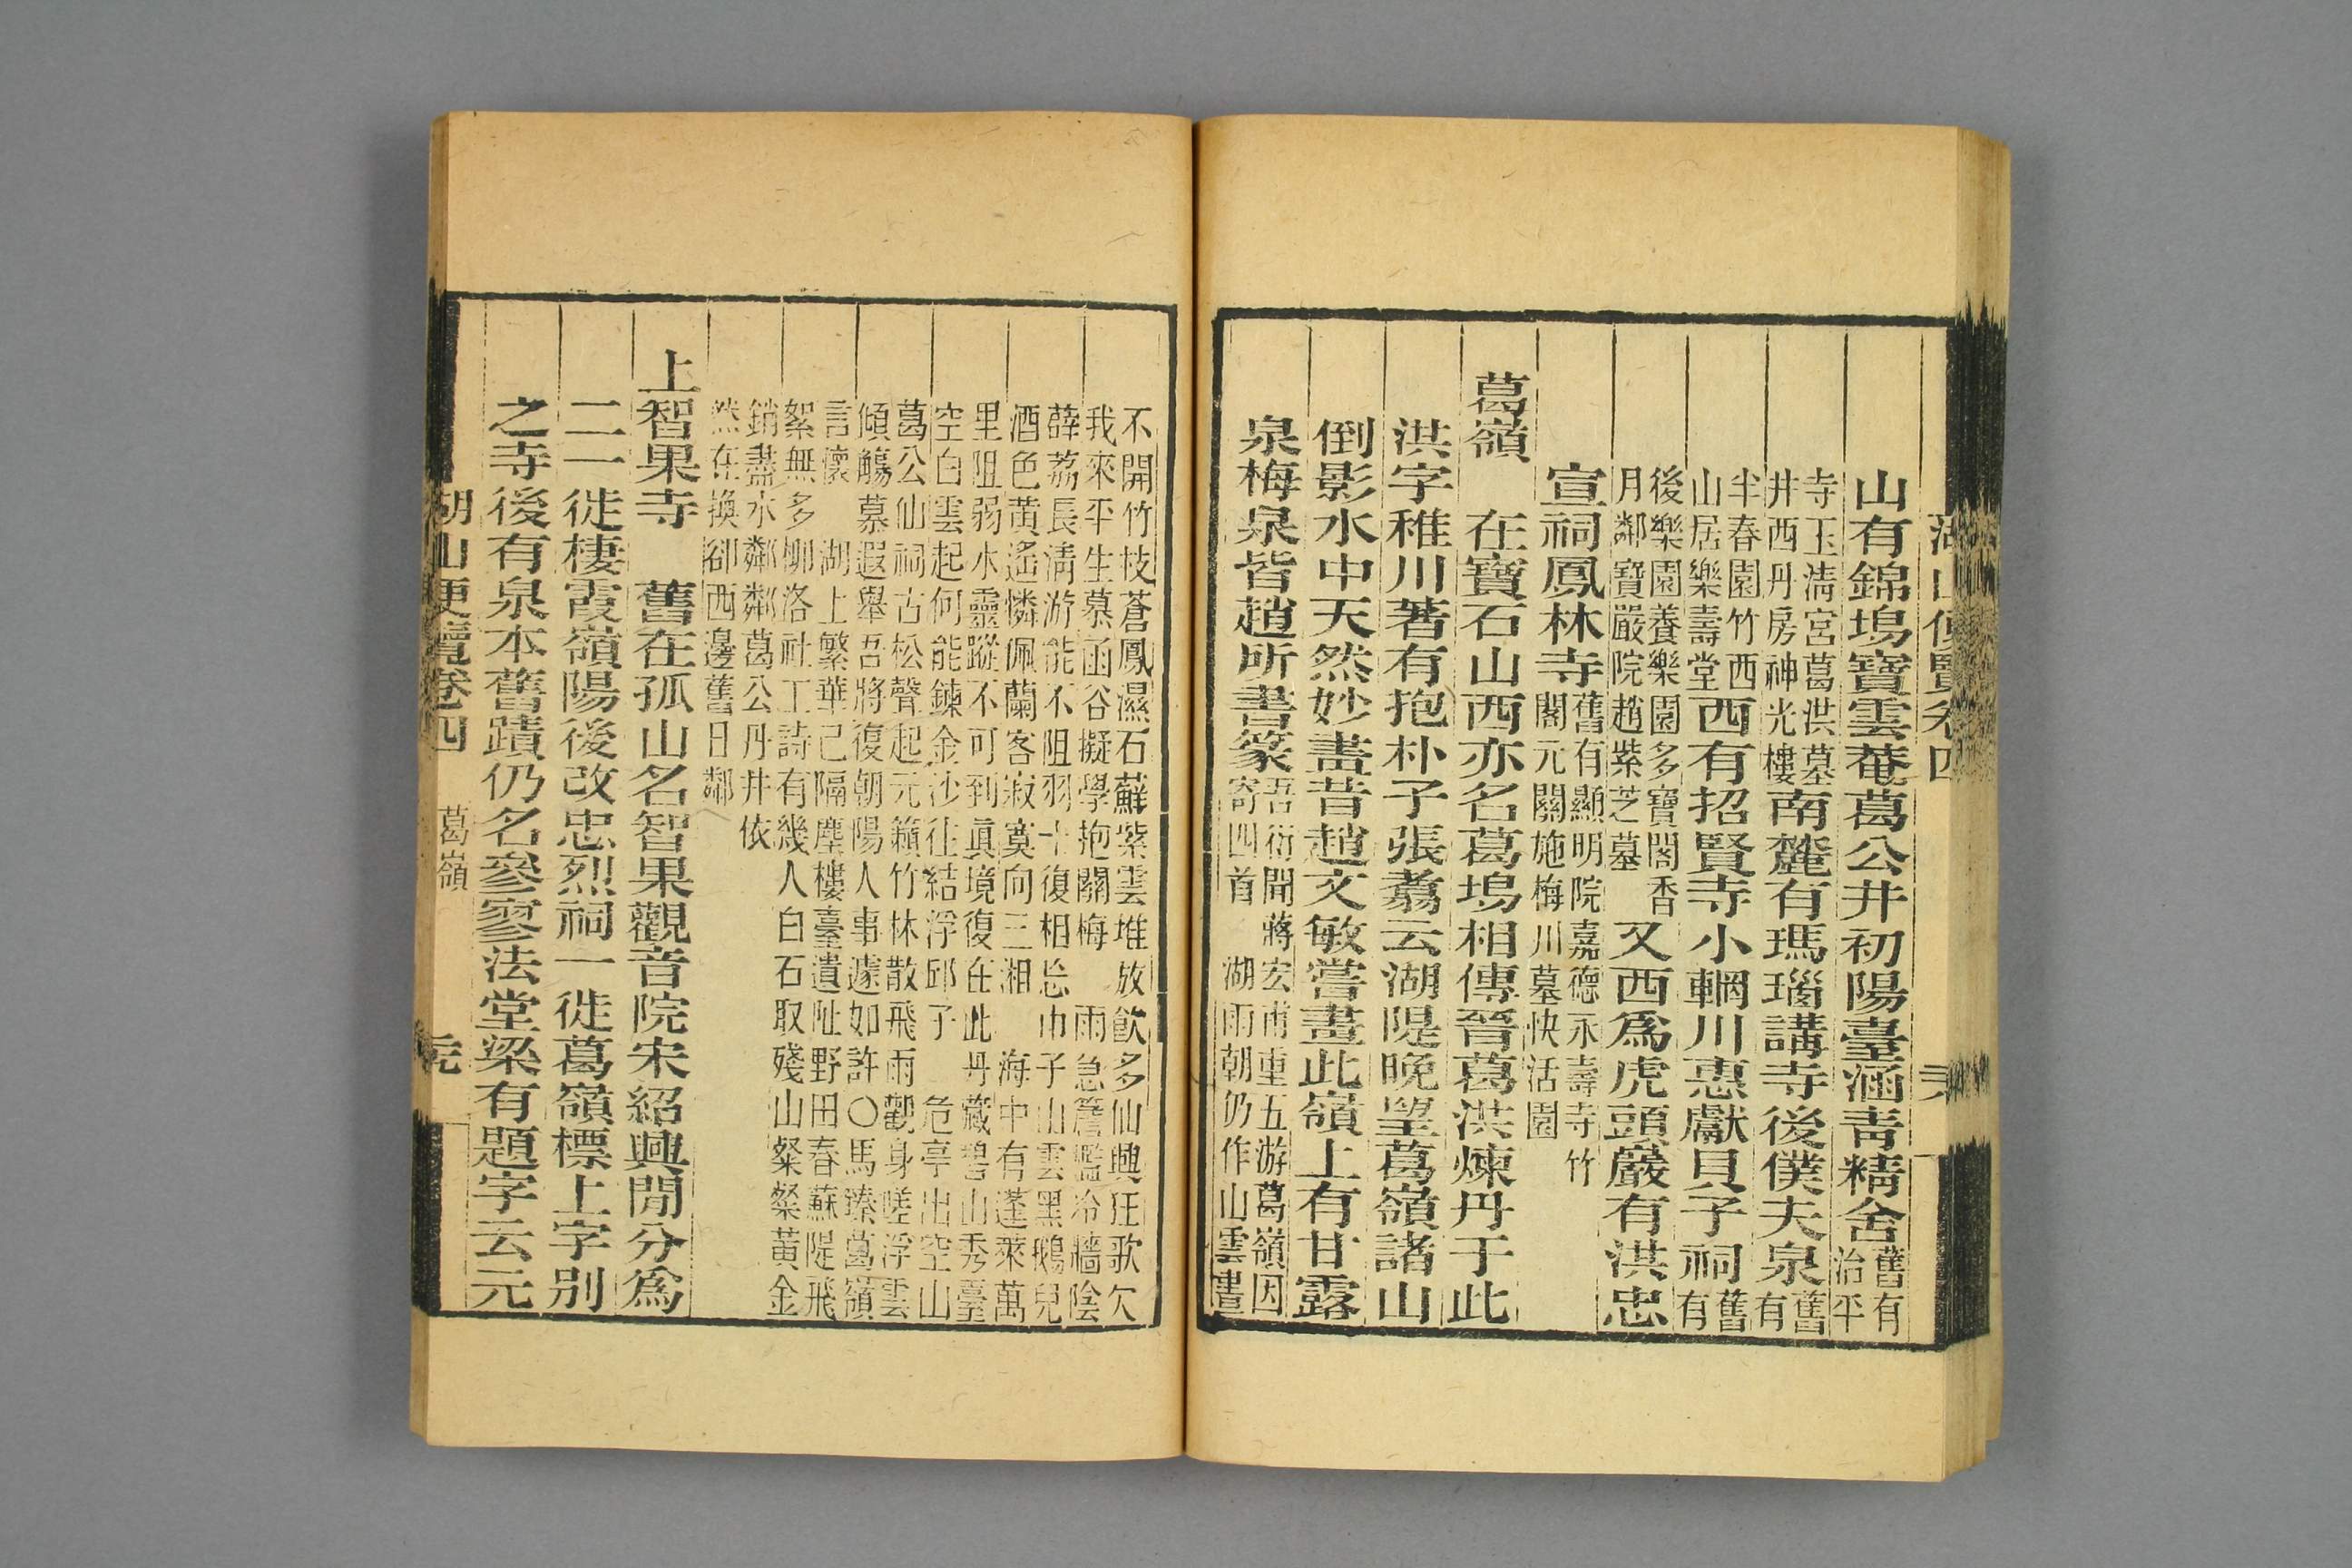 湖山便覽卷四
山有錦塢寶雲菴葛公井初陽臺涵青精舍舊有治平
寺玉清宮葛洪墓井西丹房神光樓南麓有瑪瑙講寺後僕夫泉舊有
半春園竹西山居樂壽堂西有招賢寺小輞川惠獻貝子祠舊有
後樂園養樂園多寶閣香月鄰寶嚴院趙紫芝墓又西爲虎頭巖有洪忠
宣祠鳳林寺舊有顯明院嘉德永壽寺竹閣元關施梅川墓快活園
葛嶺 在寶石山西亦名葛塢相傳晉葛洪煉丹于此
洪字稚川著有抱朴子張翥云湖隄晚望葛嶺諸山
倒影水中天然妙畫昔趙文敏嘗畫此嶺上有甘露
泉梅泉皆趙所書篆吾衍閒蔣宏甫重五游葛嶺因寄四首 湖雨朝仍作山雲晝
不開竹枝蒼鳳濕石蘚紫雲堆放飲多仙興狂歌欠
我來平生慕函谷擬學抱關梅 雨急簷檻冷牆陰
薜荔長清游能不阻羽士復相忘巾子山雲黑鵝兒
酒色黃遙憐佩蘭客寂寞向三湘 海中有蓬萊萬
里阻弱水靈蹤不可到真境復在此丹藏碧山秀臺
空白雲起何能鍊金沙往結浮邱子 危亭出空山
葛公仙祠古松聲起元籟竹林散飛雨觀身嗟浮雲
傾觴慕遐舉吾將復朝陽人事遽如許〇馬臻葛嶺
言懷 湖上繁華已隔塵樓臺遺址野田春蘇隄飛
絮無多柳洛社工詩有幾人白石取殘山粲粲黃金
銷盡水粼粼葛公丹井依
然在換卻西邊舊日鄰
上智果寺 舊在孤山名智果觀音院宋紹興閒分爲
二一徙棲霞嶺陽後改忠烈祠一徙葛嶺標上字别
之寺後有泉本舊蹟仍名參寥法堂梁有題字云元
湖山便覽卷四 葛嶺